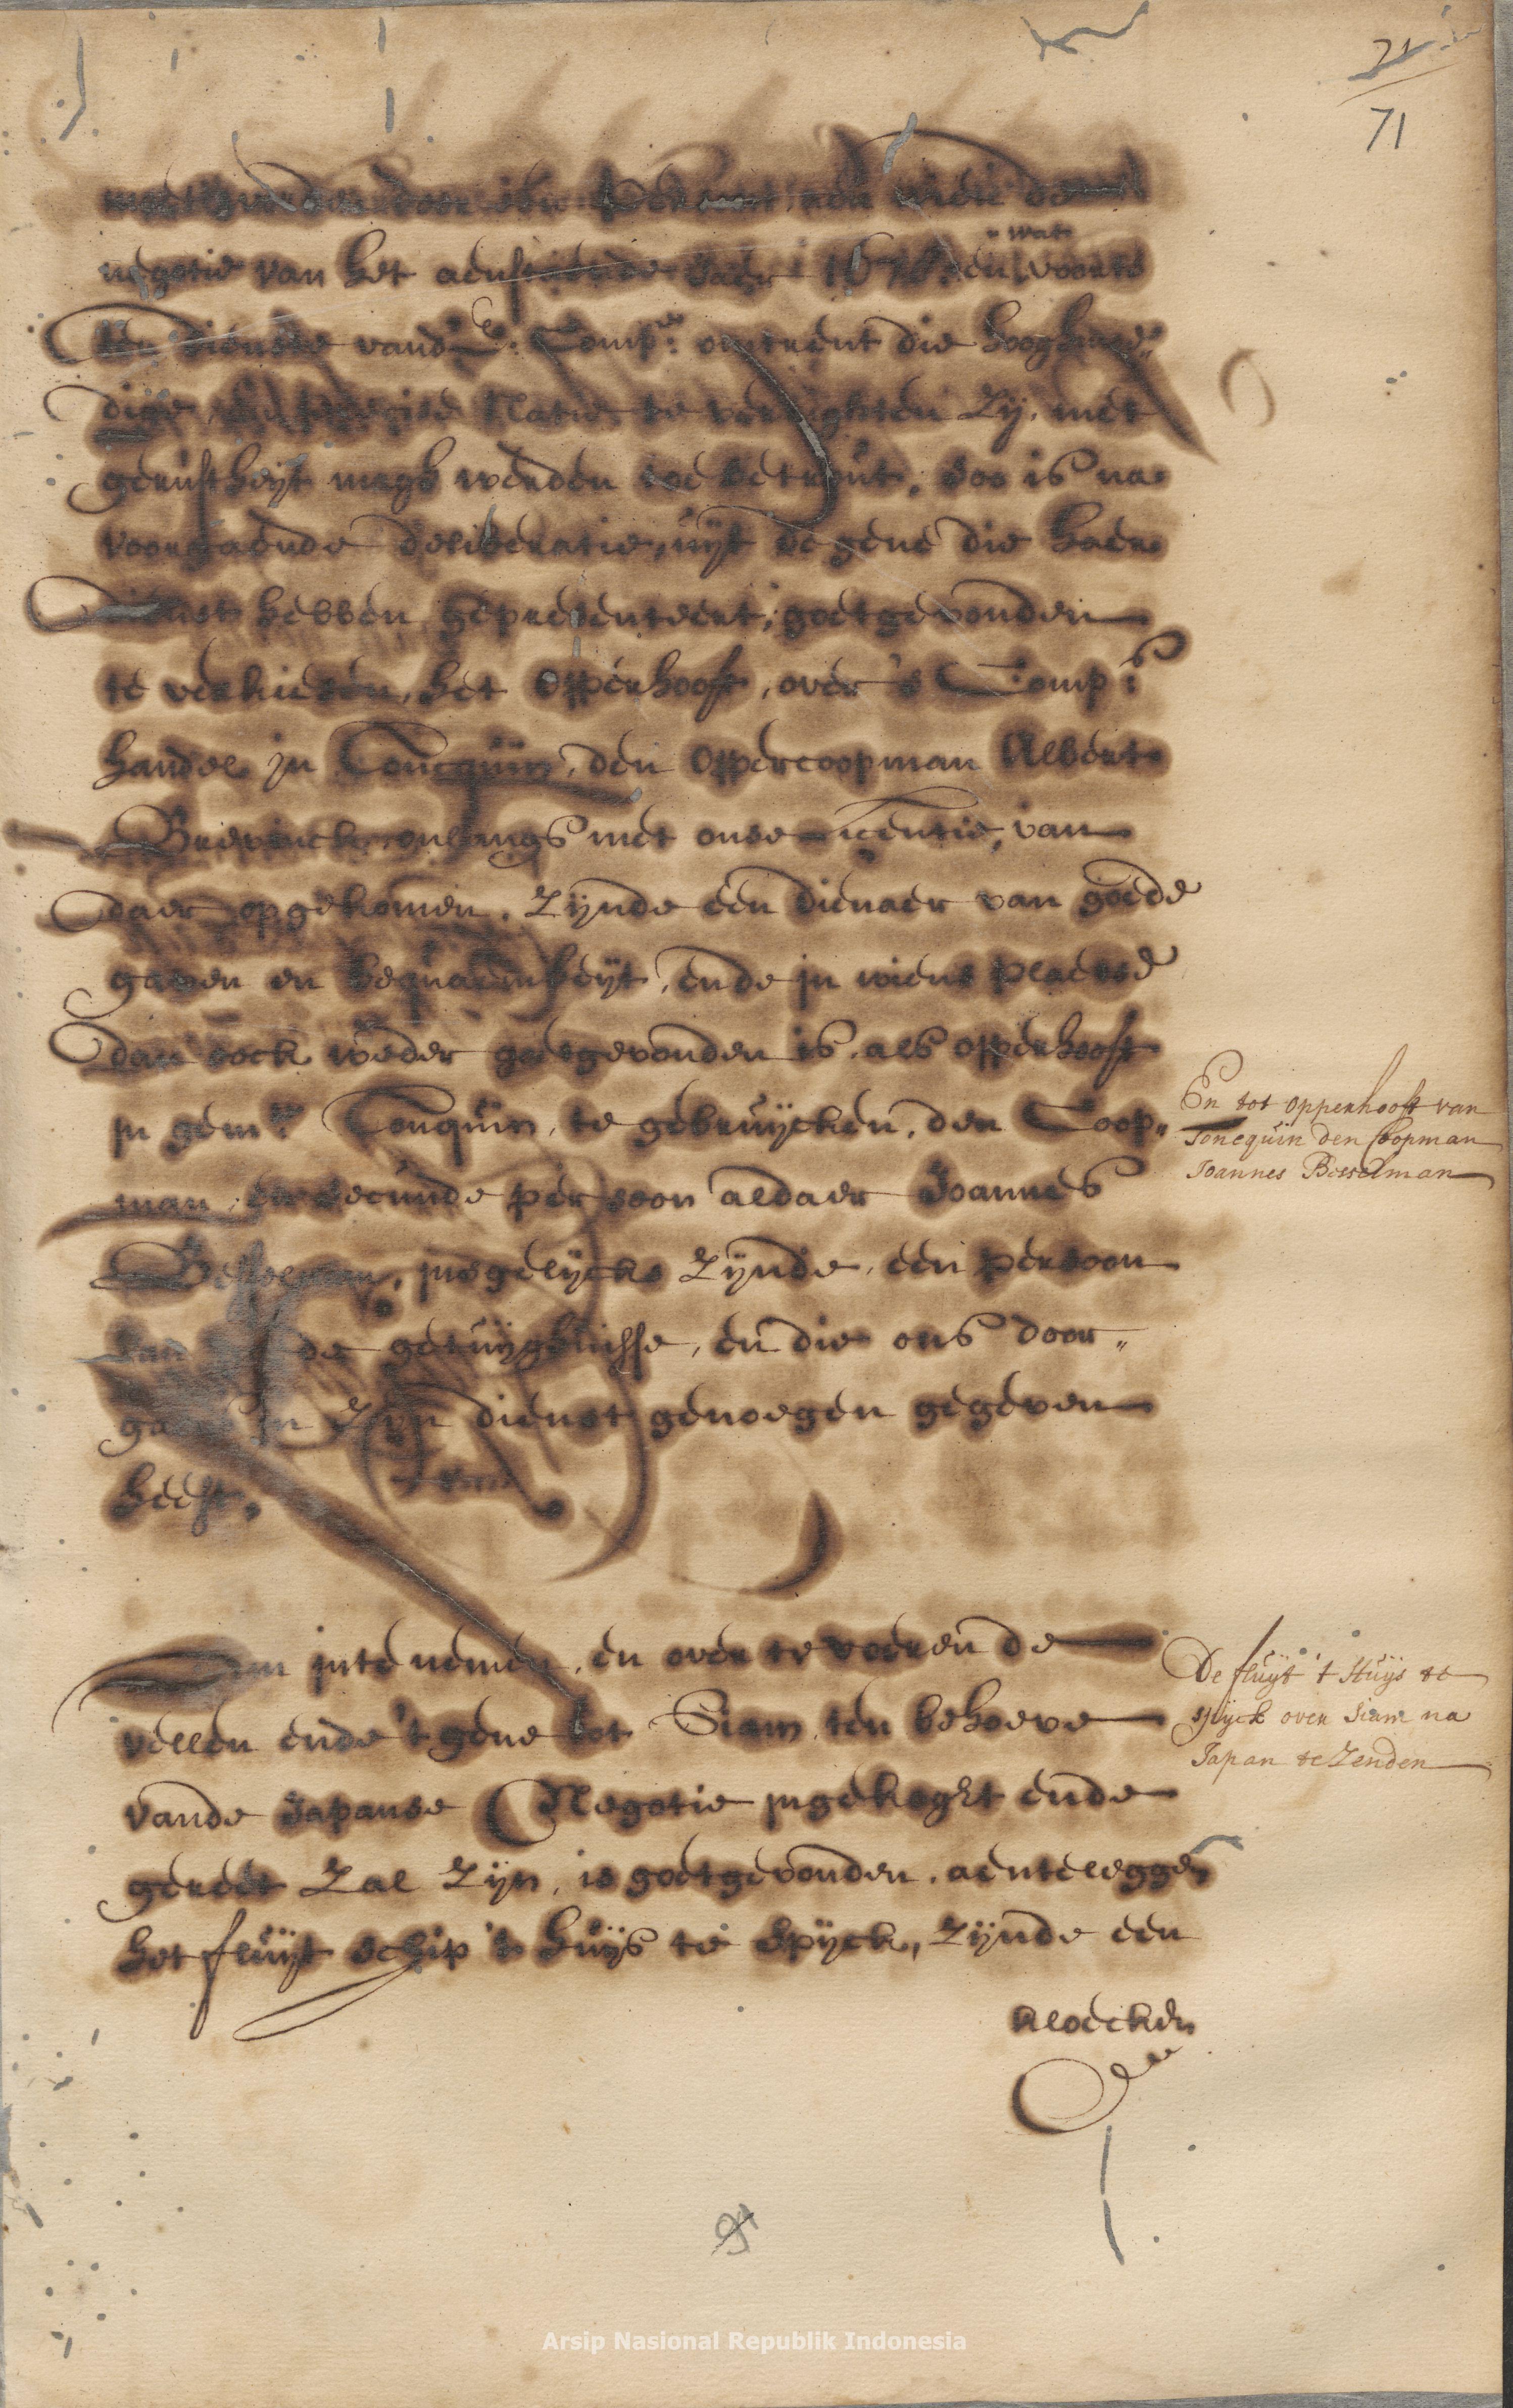 21
71
moet werden door een persoon aen wien de
negotie van het aenstaende Jaer 1678. en wat voorts
ten dienste vand' E. Comp.e omtrent die hooghmoe„
dige Natie te verrighten zy, met
gerustheijt magh werden toe betrout, soo is na
voorgaende deliberatie, uijt de gene die haer
dienst hebben gepresenteert, goetgevonden
te verkiesen, het opperhooft, over 's Comp:s
handel in Toncquin, den oppercoopman Albert
Brevinck, onlangs met onse licentie, van
daer opgekomen, zijnde een dienaer van goede
gaven en bequaemheijt, ende in wiens plaetse
dan oock weder goetgevonden is, als opperhooft
in gem.e Tonquin, te gebruijcken, den Coop„
man en secunde persoon aldaer Joannes
Besselman, insgelijcks zijnde, een persoon
van de getuijgenisse, en die ons door„
gaens in zijn dienst genoegen gegeven
heeft.
En tot opperhooft van
Toncquin den Coopman
Joannes Besselman
Om inte nemen, en over te voeren de
vellen ende 't gene tot Siam ten behoeve
vande Japanse Negotie ingekoght ende
gereet zal zijn, is goetgevonden, aenteleggen
het fluijt schip 't huijs te Spijck, zijnde een
De fluyt 't Huijs te
Spijck over Siam na
Japan te zenden
kloecken
Arsip Nasional Republik Indonesia